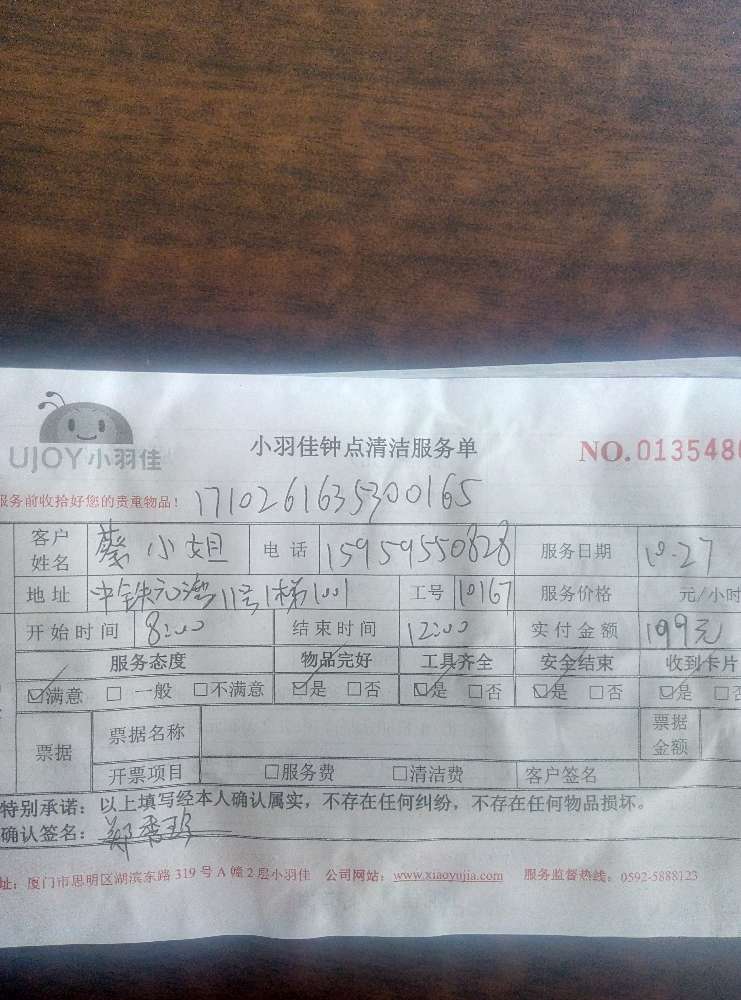 UJOY小羽佳
小羽佳钟点清洁服务单
NO.013548
服务前收拾好您的贵重物品! 1710261635300165
客户姓名 蔡小姐 电话 15959550828 服务日期 10.27
地址 中铁元湾11号1梯1001 工号 10167 服务价格 元/小时
开始时间 8:00 结束时间 12:00 实付金额 199元
服务态度 物品完好 工具齐全 安全结束 收到卡片
☑满意 □一般 □不满意 ☑是 □否 ☑是 □否 ☑是 □否 ☑是 □否
票据 票据名称 票据金额
开票项目 □服务费 □清洁费 客户签名
特别承诺:以上填写经本人确认属实,不存在任何纠纷,不存在任何物品损坏。
确认签名:郑香
址:厦门市思明区湖滨东路 319 号 A 幢 2 层小羽佳 公司网站:www.xiaoyujia.com 服务监督热线:0592-5888123